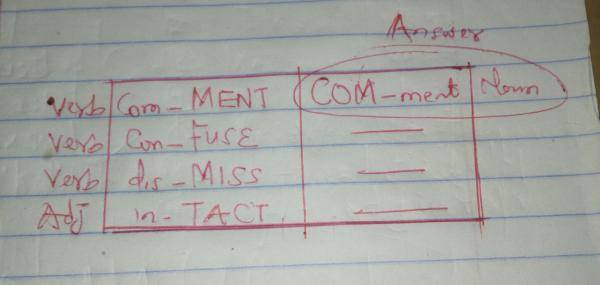 Answer
Verb Com-MENT COM-ment Noun
Verb Con-FUSE
Verb dis-MISS
Adj in-TACT.